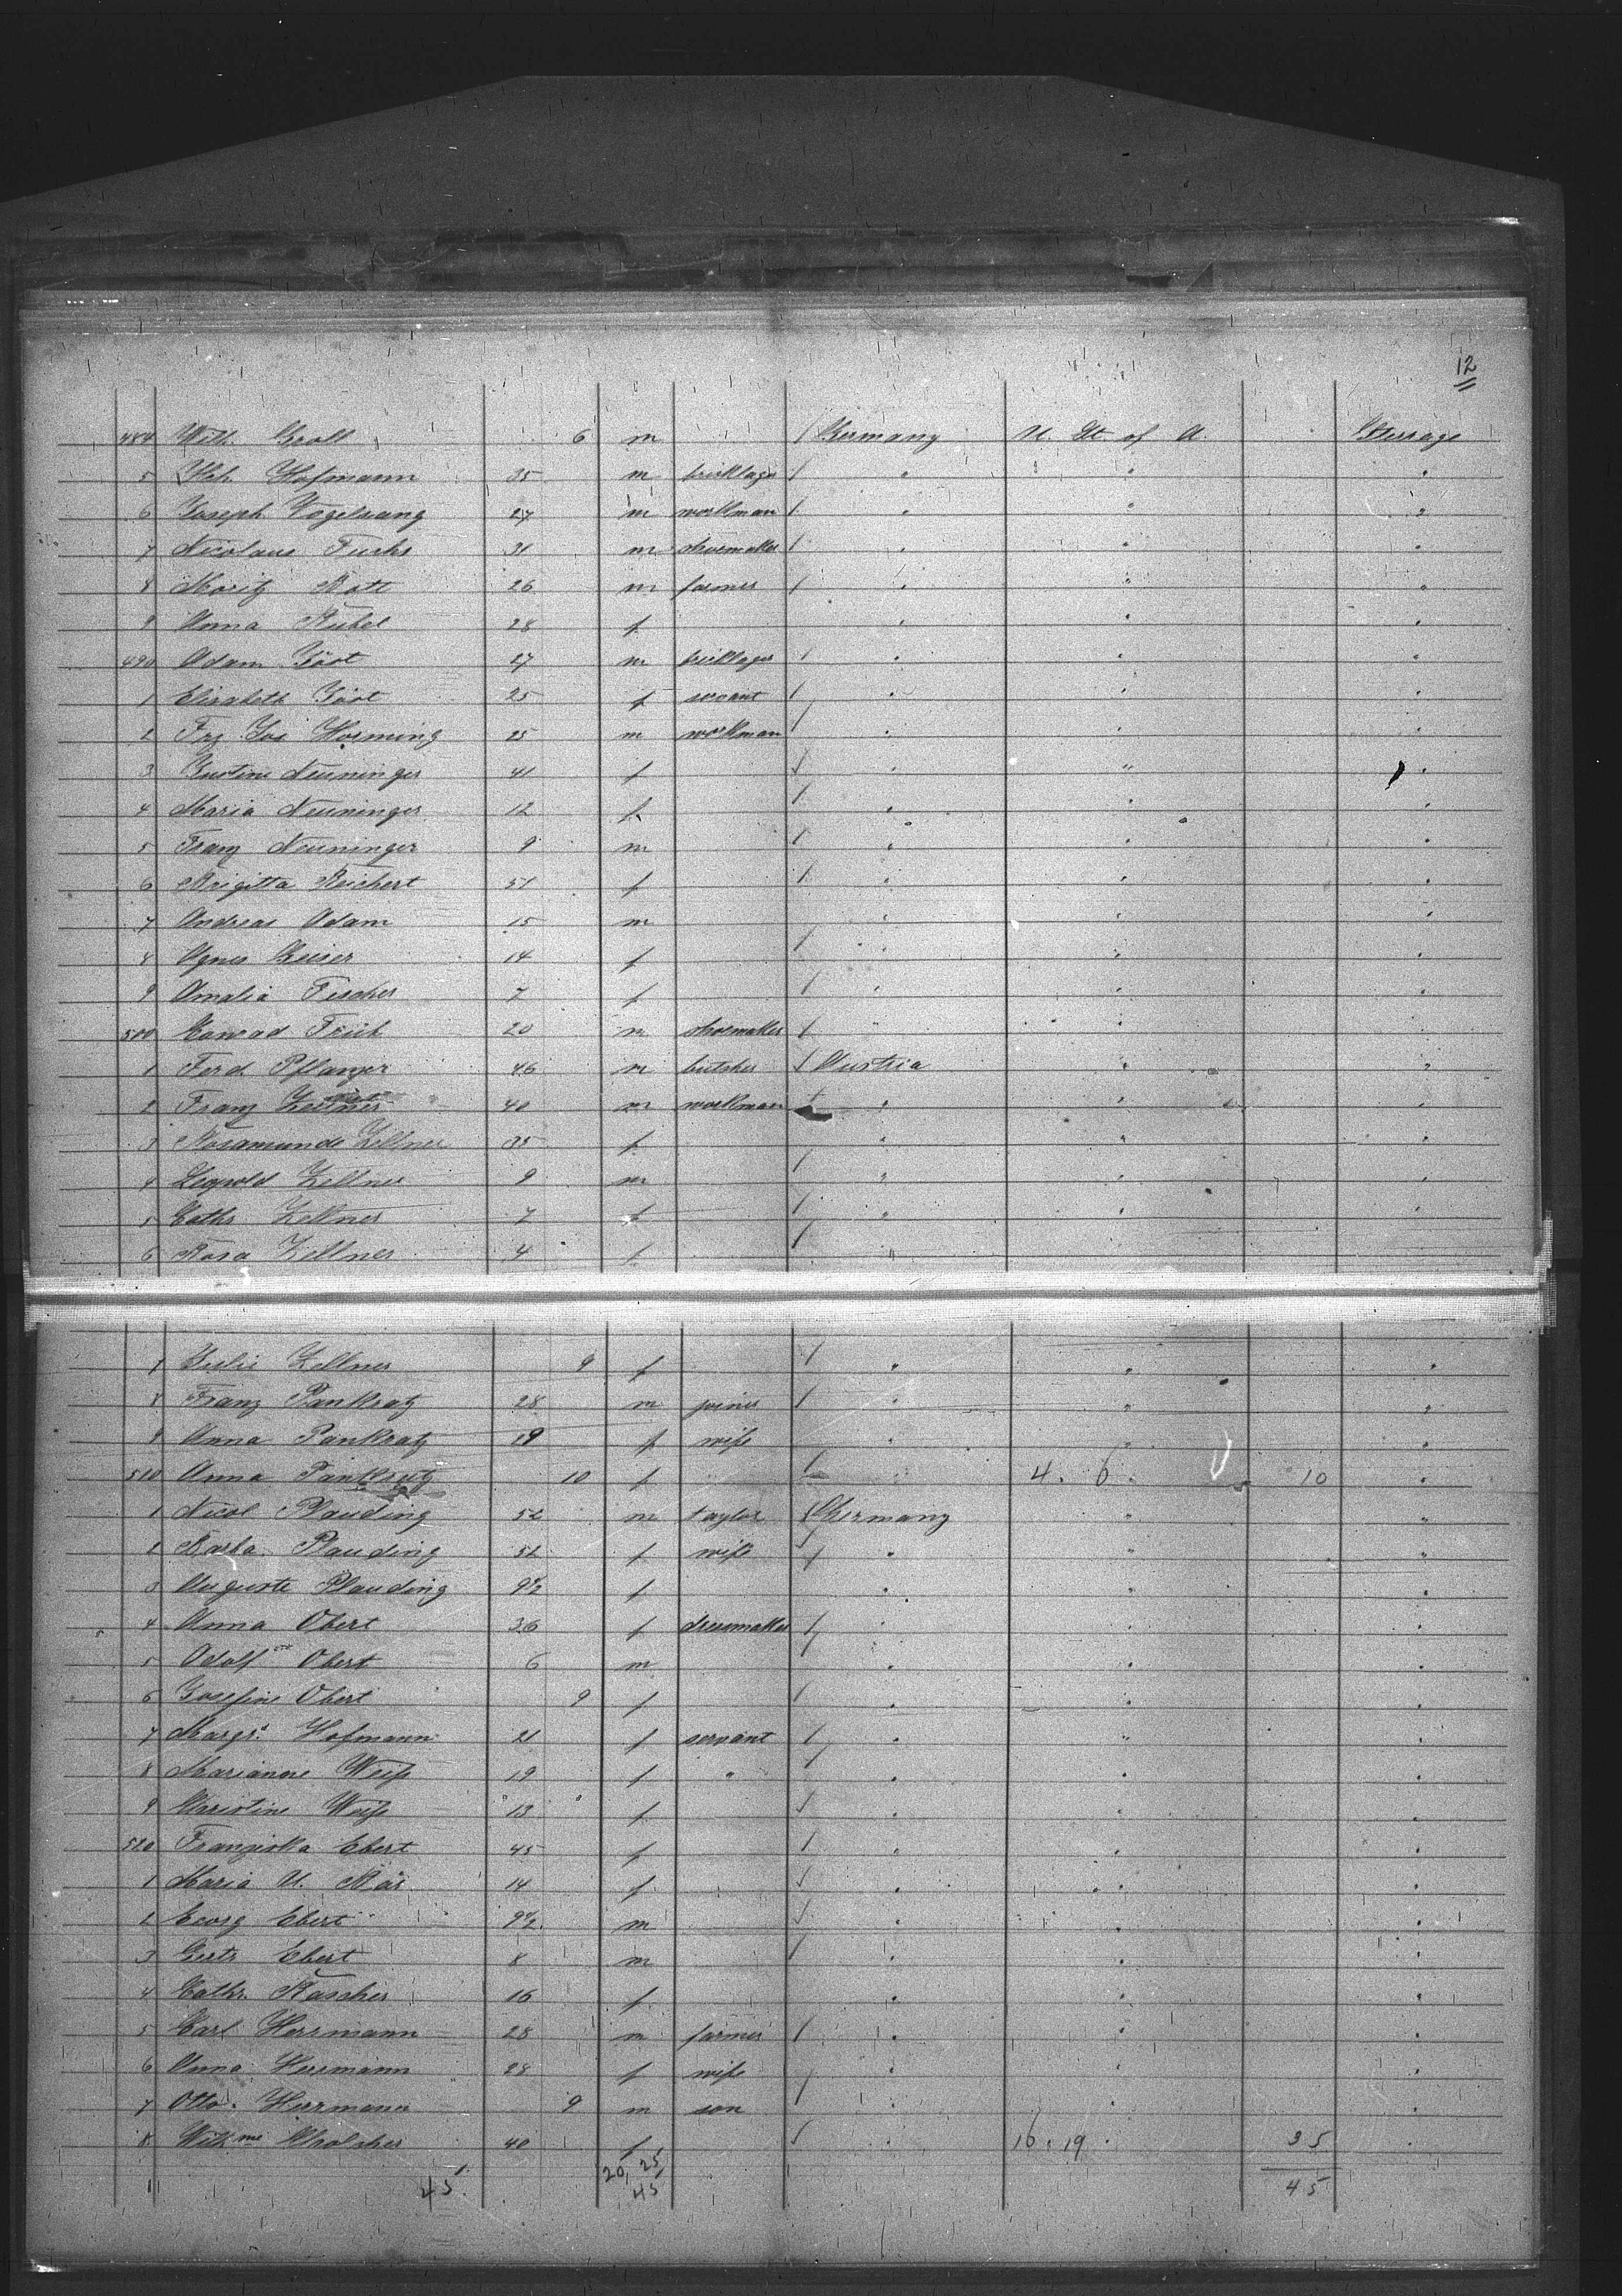 12
484 Wilh. Groll 6 m Germany U. St. of A. Steerage
5 Hch. Hofmann 35 m bricklayer " " "
6 Joseph Vogelsang 27 m workman " " "
7 Nicolaus Fuchs 31 m shoemaker " " "
8 Moritz 26 m farmer " " "
9 Anna 28 f " " "
490 Adam Jöst 27 m bricklayer " " "
1 Elisabeth Jöst 25 f servant " " "
2 Frz. Jos. Horning 25 m workman " " "
3 Justine Neuninger 41 f " " "
4 Maria Neuninger 12 f " " "
5 Franz Neuninger 9 m " " "
6 Brigitta Reichert 51 f " " "
7 Andreas Adam 15 m " " "
8 Agnes 14 f " " "
9 Amalia Fischer 7 f " " "
500 Conrad 20 m shoemaker " " "
1 Ferd. Pflanzer 46 m butcher Austria " "
2 Franz Zellner 40 m workman " " "
3 Rosamunde Zellner 35 f " " "
4 Leopold Zellner 9 m " " "
5 Cathr. Zellner 7 f " " "
6 Rosa Zellner 4 f "
7 Julie Zellner 9 f " " "
8 Franz Pankratz 28 m joiner " " "
9 Anna Pankratz 29 f wife " " "
510 Anna Pankratz 10 f 4. 6. 10 "
1 Nicol Plauding 52 m taylor Germany " "
2 Barba. Plauding 52 f wife " " "
3 Auguste Plauding 9½ f " " "
4 Anna Obert 36 f dressmaker " " "
5 Adolf Obert 6 m " " "
6 Josefine Obert 9 f " " "
7 Margr. Hofmann 21 f servant " " "
8 Marianne Weiß 19 f " " " "
9 Christine Weiß 13 f " " "
520 Franziska Ebert 45 f " " "
1 Maria A. Bär 14 f " " "
2 Georg Ebert 9½ m " " "
3 Ebert 8 m " " "
4 Cathr. Rascher 16 f " " "
5 Carl Herrmann 28 m farmer " " "
6 Anna Herrmann 28 f wife " " "
7 Otto Herrmann 9 m son " " "
8 Wilhme 40 f " 16. 19. 35 "
45 20 25 45 45